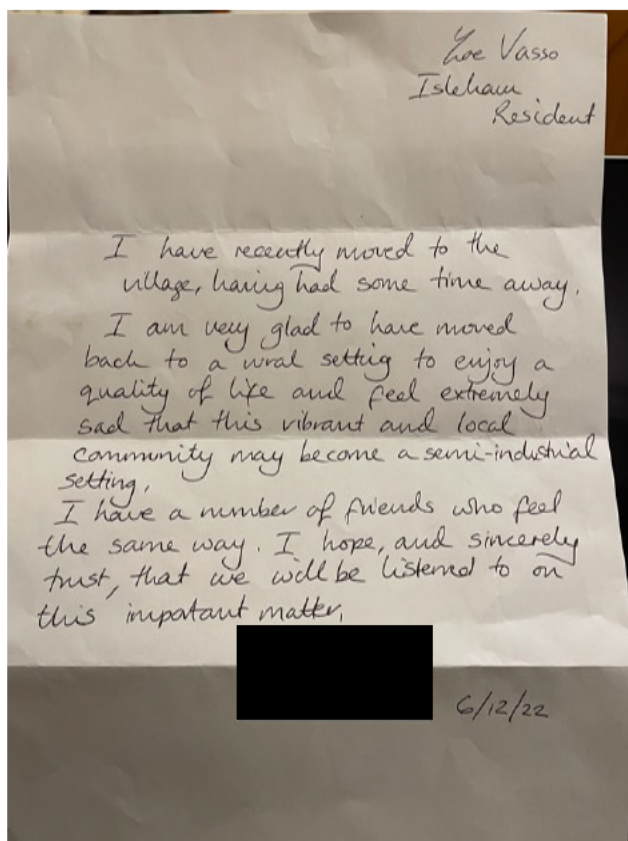 Zoe Vasso
Isleham
Resident
I have recently moved to the
village, having had some time away.
I am very glad to have moved
back to a rural setting to enjoy a
quality of life and feel extremely
sad that this vibrant and local
community may become a semi-industrial
setting.
I have a number of friends who feel
the same way. I hope, and sincerely
trust, that we will be listened to on
this important matter.
6/12/22